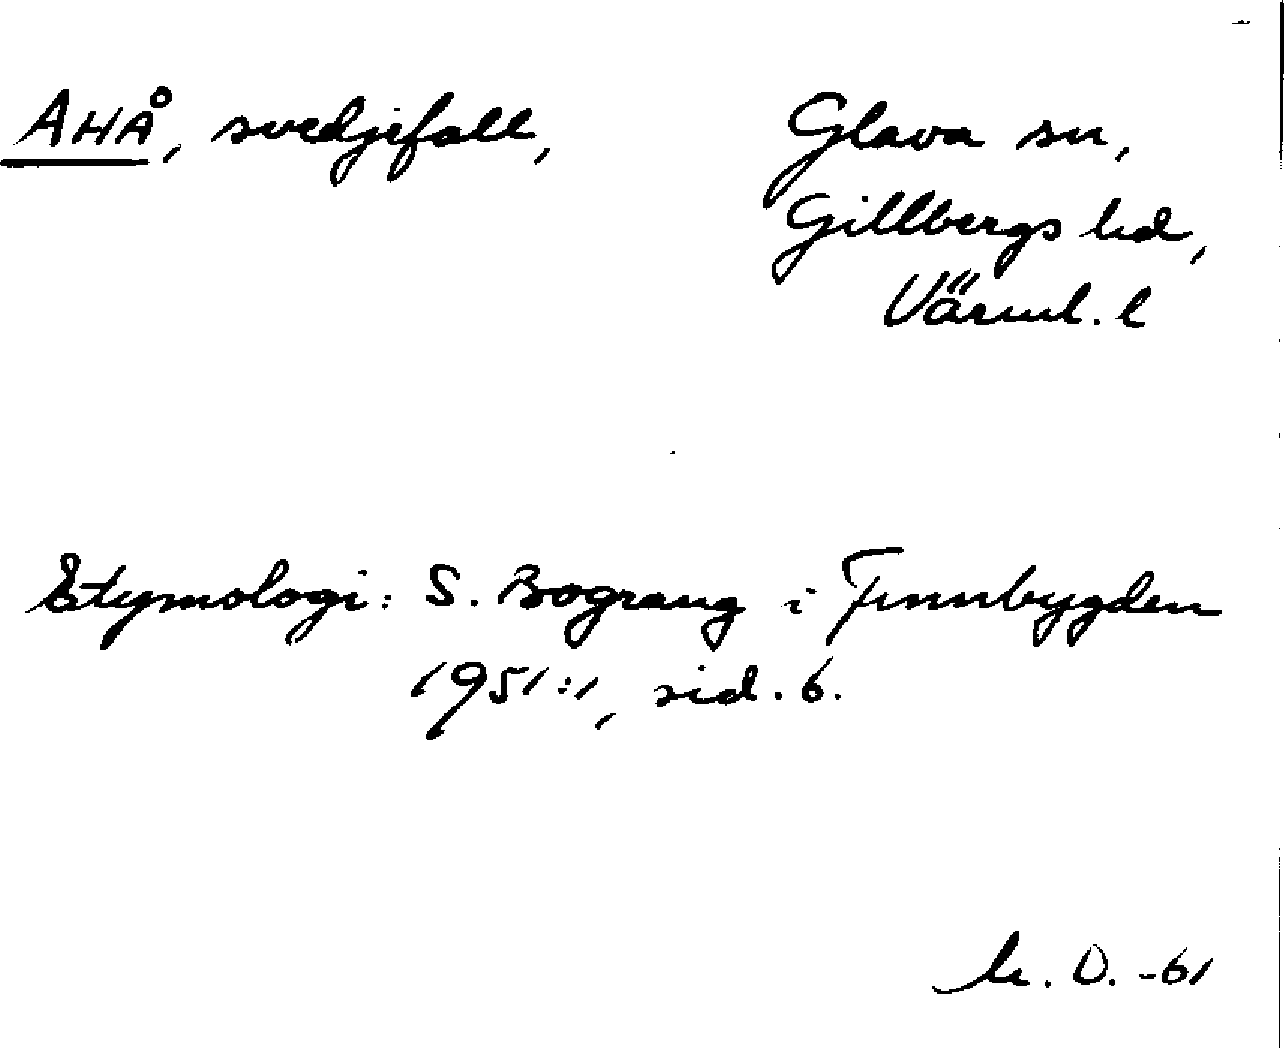 AHÅ, svedjefall,
Glava sn,
Gillbergs hd,
Värml. l
Etymologi: S. Bograng i Finnbygden
1951:1, sid. 6.
D. -61